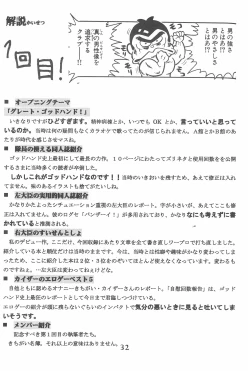 解説かいせつ
1回目！
男の強さとはあ!?
男のやさしさとはあ!?
真の男性復を追求するクラブ…!!
■ オープニングテーマ
「グレート・ゴッドハンド！」
いきなりですがひどすぎます。精神病棟とか、いつでもOKとか、言っていいと思って
いるのか。当時は何の疑問もなくカラオケで歌ってたのが信じられません。A類とかB類のあ
たりが時代を感じさせマスね。
■ 隊長の燃える同人誌紹介
ゴッドハンド史上最初にして最長の力作。10ページにわたってズリネタと使用回数を公開
するさまに当時多くの読者が卒倒した。
しかしこれがゴッドハンドなのです！！当時のいきおいを残すため、あえて修正は入れ
てません。味のあるイラストも捨てがたいしね。
■ 右大臣の実用的同人誌紹介
かなりかたよったシチュエーション重視の右大臣のレポート。字が小さいが、あえてここも修
正は入れてません。彼のロゼを「バンザーイ！」が多用されており、かなりなにも考えずに書
かれていると推測される。
■ 右大臣のすいせんとしょ
私のデビュー作。ここだけ、今回収録にあたり文章を全て書き直しリープロで打ち直しました。
紹介している本と順位だけは当時のままです。今は、当時とは性癖や趣味がかなり変わってしま
ったため、ここに紹介した本は2位・3位をのぞいてほとんど使えなくなっています。変わるも
のですねぇ。…右大臣は変わってねぇけどな。
■ カイザーのエログーベスト5
自他ともに認めるオナニーきちがい・カイザーさんのレポート。「自慰回数報告」は、ゴッド
ハンド史上最低のレポートとして今日まで君臨しつづけている。
エログーの紹介が適に残らないぐらいのインパクトで気分の悪いときに見ると吐いてしま
いそうです。
■ メンバー紹介
記念すべき第1回目の執筆者たち。
きちがい名簿。それ以上の意味はありません。
32